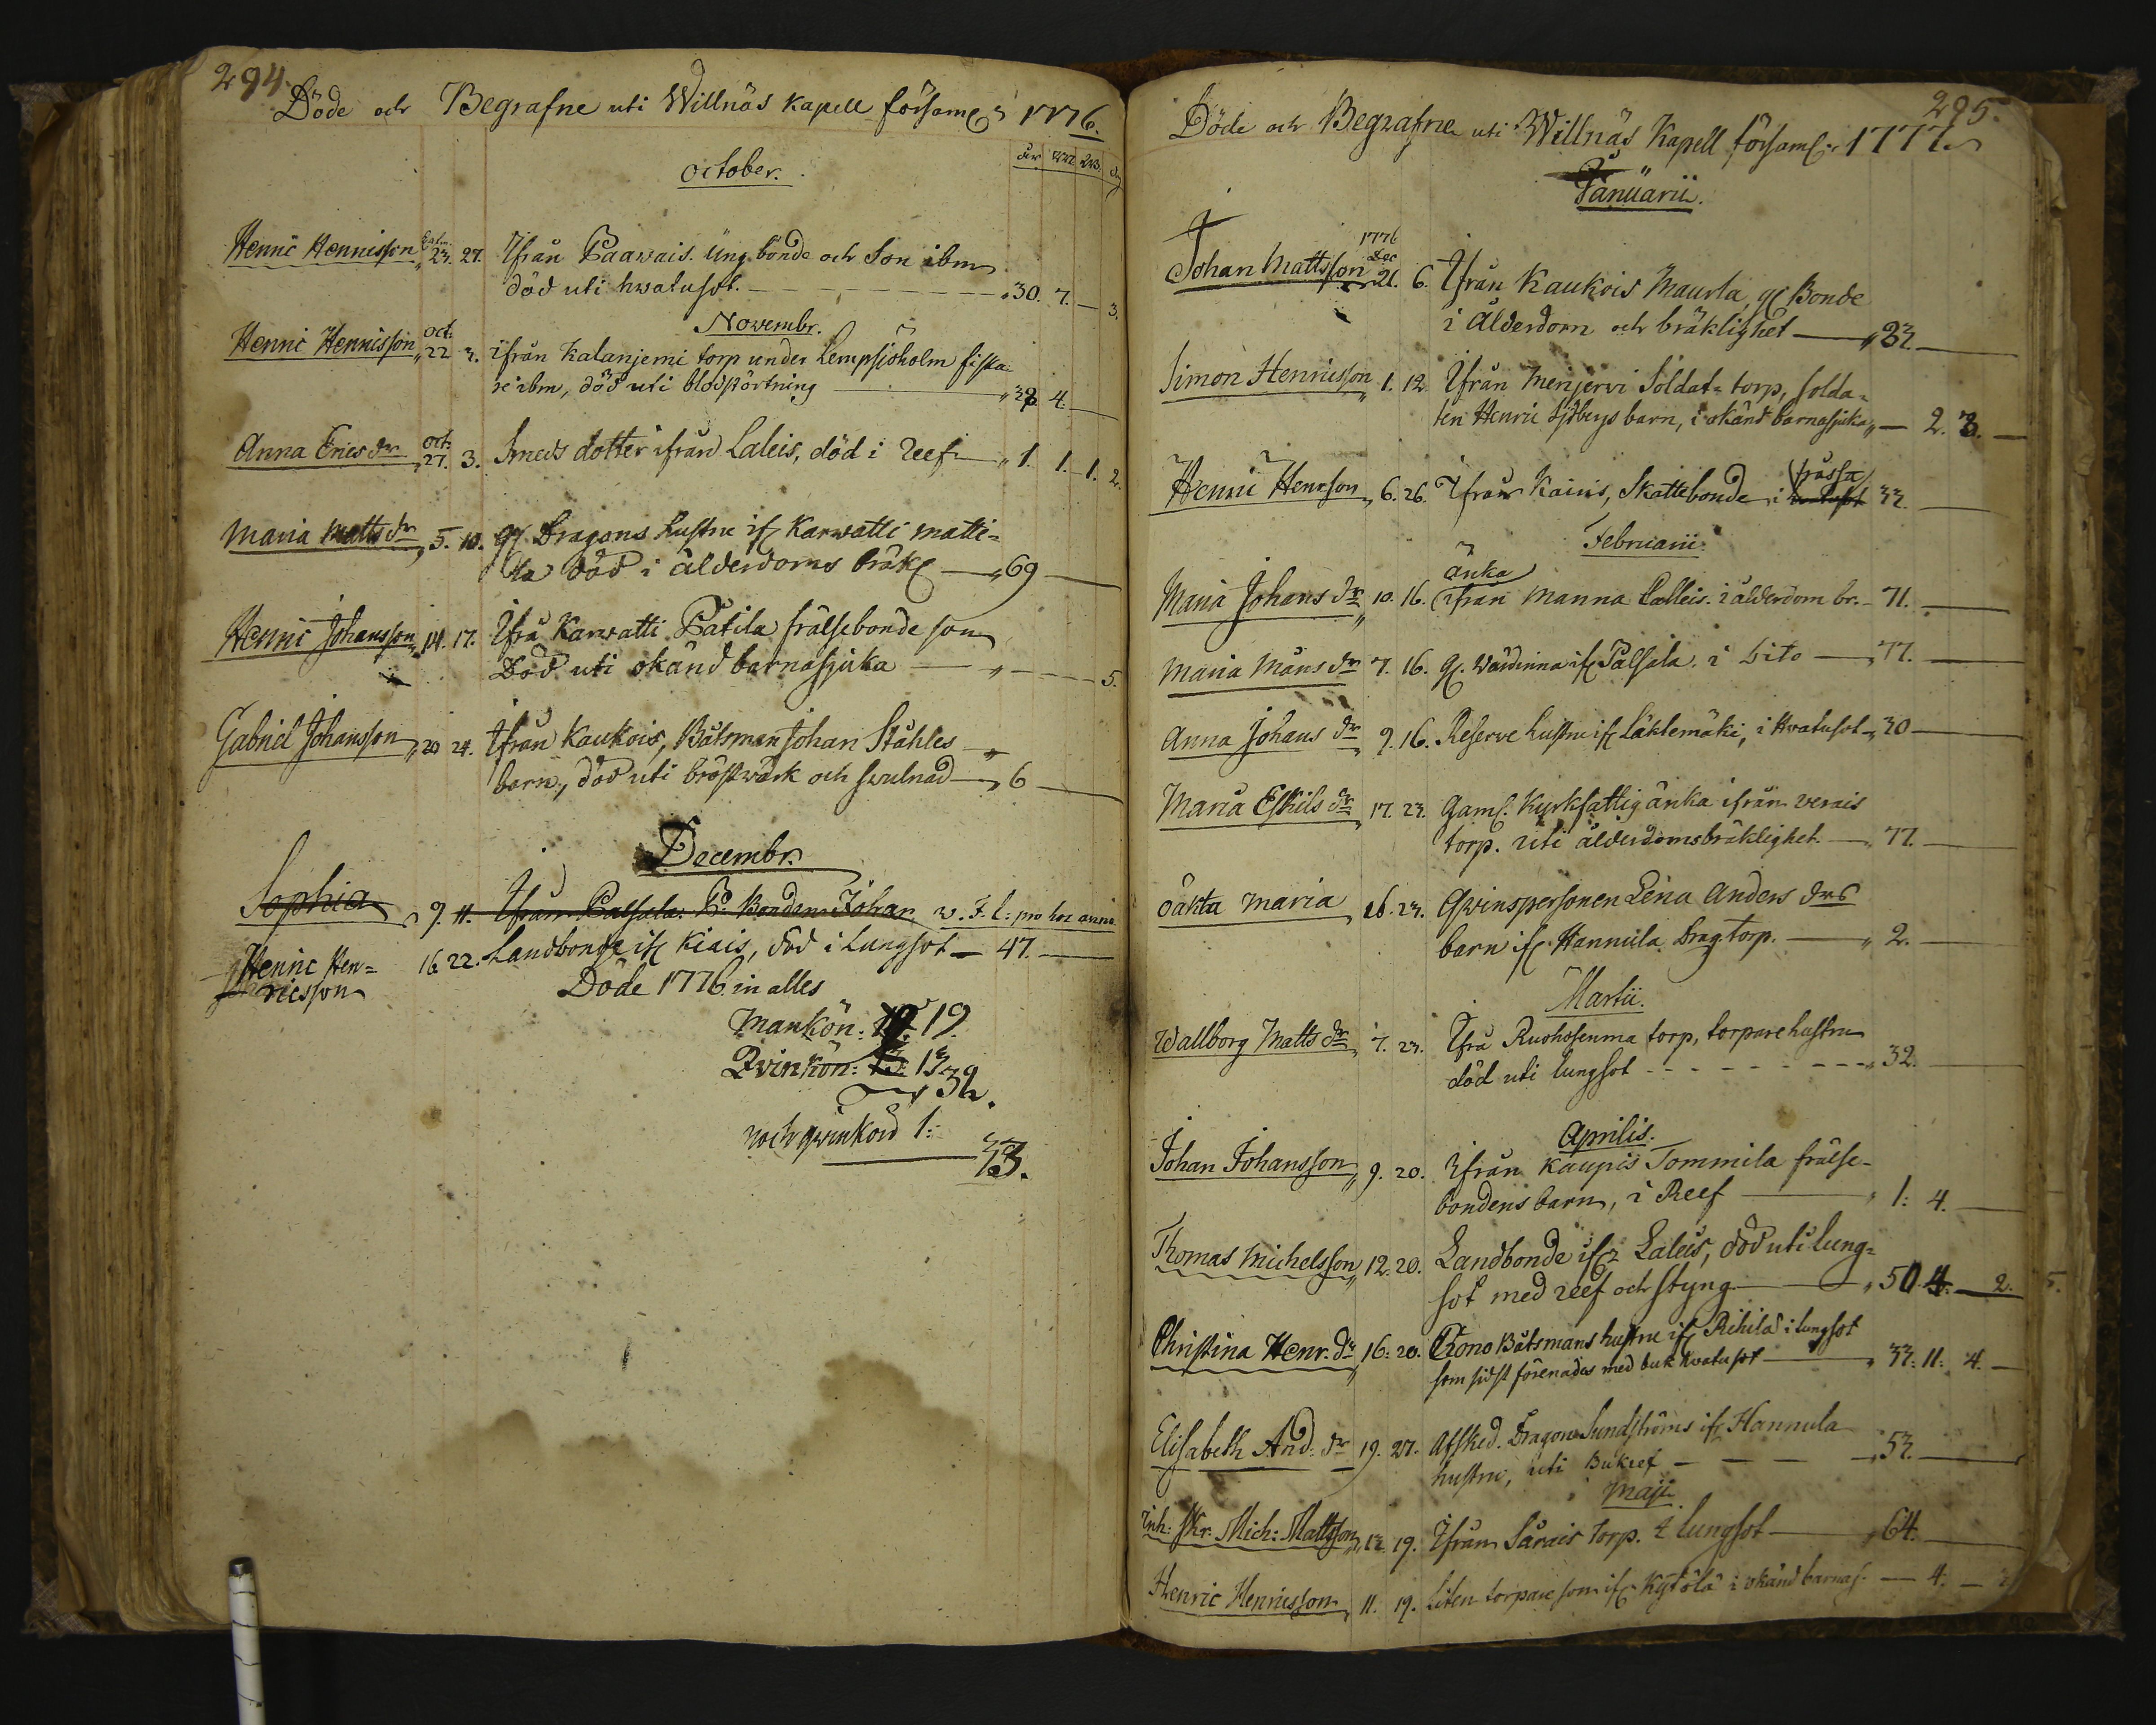 294.
Döde och Begrafne uti Willnäs Kapell församl: 1776.
October.
år M W d
Henric Henricsson 23. 27. Ifrån Paawais. ung bonde och Son ibm
död uti hwatusot. 30. 7. — 3.
Novembr.
Henric Henricsson oct: 22 3. ifrån Kalanjemi torp under Lempsjöholm fiska-
re ibm, död uti blodstörtning 38 4.
Anna Erics dr oct: 27. 3. Smeds dotter ifrån Laleis, död i reef 1. 1. 1. 2.
Maria Matts dr 5. 10. gl Dragons hustru if: Karwatti Matti-
la död i ålderdoms bräkl 69
Henric Johansson 14. 17. Ifrå Karwatti Patila frälsebonde son
Död uti okänd barnasjuka 5.
Gabriel Johansson 20 24. Ifrån Kaukois, Båtsman Johan Ståhles
barn, död uti bröstwärk och swulnad 6
Decembr.
Sophia 9. 11. Ifrån Palsala. Bonden Johan v. f. l: pro hoc anno.
Henric Hen= 16. 22. Landbonde if: Kiais, död i Lungsot — 47.
ricsson
Döde 1776 in alles
Mankön: 19.
Qvinkön: 13
32.
noch qwinkön 1:
33.
295.
Döde och Begrafne uti Willnäs Kapell församl: 1777.
Januarii.
1776
Johan Mattsson Dec 21. 6. Ifrån Kaukois Maurla, gl Bonde
i Ålderdom och bräklighet 83.
Simon Henricsson 1. 12. Ifrån Menjervi Soldat= torp, solda=
ten Henric Sjöbergs barn, i okänd barnasjuka — 2. 3. —
(trässa
Henric Henrson 6. 26. Ifrån Kainis, Skattebonde i 33.
Februarii.
änka
Maria Johans dr 10. 16. ifrån Manna Calleis. i ålderdom br. 71.
Maria Måns dr 7. 16. gl. Wärdinna if: Palsala. i Sito 77.
Anna Johans dr 9. 16. Reserve hustru if: Läktemäki, i hwatusot 30
Maria Eskils dr 17. 23. Gaml. Kyrkfattig änka ifrån verais
torp. uti ålderdomsbräklighet. 77.
oäkta Maria 16. 23. Qwinspersonen Lena Anders drs
barn if: Hannula Drag. torp. 2.
Martii.
Wallborg Matts dr 7. 23. Ifrå Ruohosenma torp, torpare hustru
död uti lungsot 32.
Aprilis.
Johan Johansson 9. 20. Ifrån Kaupis Tommila frälse-
bondens barn, i Reef 1: 4.
Thomas Michelsson 12. 20. Landbonde ifr Laleis, död uti lung=
sot med reef och styng 50 4. — 2.
Christina Henr. dr 16: 20. Crono Båtsmans hustru if: Rihila i lungsot
som sidst förenades med buk hwatusot 33: 11: 4.
Elisabeth And: dr 19. 27. Afsked. Dragon Sundströms if: Hannula
hustru, uti Bukref 53.
Maji
Inh: Skr: Mich: Mattsson 13. 19. Ifrån Sarais torp. i lungsot 64.
Henric Henricsson 11. 19. Liten torpare son if: Kytölä i okänd barnas. — 4. —